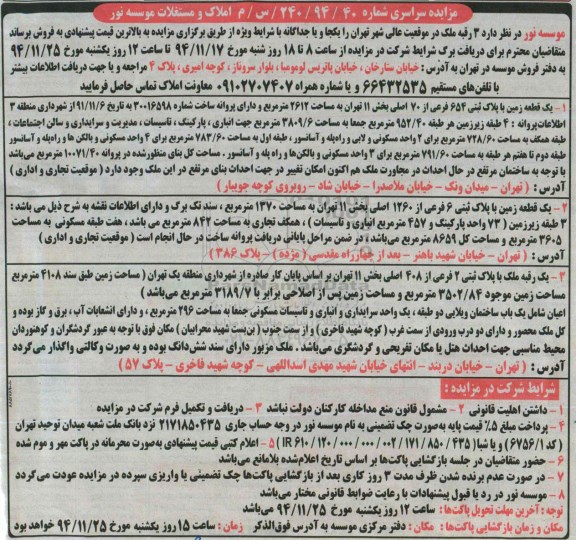 مزایده سراسری شماره ۴۰ / ۹۴ / ۲۴۰ / س / م املاک و مستغلات موسسه نور
موسسه نور در نظر دارد ۳ رقبه ملک در موقعیت عالی شهر تهران را یکجا و یا جداگانه با شرایط ویژه از طریق برگزاری مزایده به بالاترین قیمت پیشنهادی به فروش برساند
متقاضیان محترم برای دریافت برگ شرایط شرکت در مزایده از ساعت ۸ تا ۱۸ روز شنبه مورخ ۹۴/۱۱/۱۷ تا ساعت ۱۲ روز یکشنبه مورخ ۹۴/۱۱/۲۵
به دفتر فروش موسسه در تهران به آدرس : خیابان ستارخان ، خیابان پاتریس لومومبا ، بلوار سروناز ، کوچه امیری ، پلاک ۴ مراجعه و یا جهت دریافت اطلاعات بیشتر
با تلفن‌های مستقیم ۶۶۴۳۲۵۳۵ و یا شماره همراه ۰۹۱۰۲۷۰۷۴۰۷ معاونت املاک تماس حاصل فرمایید
۱- یک قطعه زمین با پلاک ثبتی ۶۵۴ فرعی از ۷۰ اصلی بخش ۱۱ تهران به مساحت ۲۶۱۲ مترمربع و دارای پروانه ساخت شماره ۳۰۰۱۶۵۹۸ به تاریخ ۹۱/۱۱/۶ از شهرداری منطقه ۳
اطلاعات پروانه : ۴ طبقه زیرزمین هر طبقه ۹۵۲/۴۰ مترمربع جمعا به مساحت ۳۸۰۹/۶ مترمربع جهت انباری ، پارکینگ ، تاسیسات ، مدیریت و سرایداری و سالن اجتماعات ،
طبقه همکف به مساحت ۷۲۸/۶۰ مترمربع برای ۲ واحد مسکونی و لابی و راه‌پله و آسانسور ، طبقه اول به مساحت ۷۸۳/۶۰ مترمربع برای ۴ واحد مسکونی و بالکن ها و راه‌پله و آسانسور
طبقه دوم تا هفتم هر طبقه به مساحت ۷۹۱/۶۰ مترمربع برای ۳ واحد مسکونی و بالکن‌ها و راه پله و آسانسور . مساحت کل بنای منظورشده در پروانه ۱۰۰۷۱/۴۰ مترمربع می‌باشد
با توجه به ساختمان مرتفع در حال احداث در مجاورت ملک هم اکنون امکان تغییر در جهت احداث بنای مرتفع در این ملک وجود دارد ( موقعیت تجاری و اداری )
آدرس : ( تهران - میدان ونک - خیابان ملاصدرا - خیابان شاد - روبروی کوچه جویبار )
۲- یک قطعه زمین با پلاک ثبتی ۶ فرعی از ۱۲۶۰ اصلی بخش ۱۱ تهران به مساحت ۱۳۷۰ مترمربع ، سند تک برگ و دارای اطلاعات نقشه به شرح ذیل می باشد :
۳ طبقه زیرزمین ( ۷۳ واحد پارکینگ و ۴۵۷ مترمربع انباری و تاسیسات ) ، همکف تجاری به مساحت ۸۴۲ مترمربع می باشد ، هفت طبقه مسکونی به مساحت
۳۶۰۵ مترمربع و مساحت کل ۸۶۵۹ مترمربع می‌باشد ، در ضمن مراحل پایانی دریافت پروانه ساخت در حال انجام است ( موقعیت تجاری و اداری )
آدرس : ( تهران - خیابان شهید باهنر - بعد از چهارراه مقدسی ( مژده ) - پلاک ۳۸۶ )
۳- یک رقبه ملک با پلاک ثبتی ۲ فرعی از ۴۰۸ اصلی بخش ۱۱ تهران بر اساس پایان کار صادره از شهرداری منطقه یک تهران ( مساحت زمین طبق سند ۴۱۰۸ مترمربع
مساحت زمین موجود ۳۵۰۲/۸۴ مترمربع و مساحت زمین پس از اصلاحی برابر با ۳۲۸۹/۷ مترمربع می‌باشد )
اعیان شامل یک باب ساختمان ویلایی دو طبقه ، یک واحد سرایداری و انباری و تاسیسات مسکونی جمعا به مساحت ۲۹۶ مترمربع ، و دارای انشعابات آب ، برق و گاز بوده و
کل ملک محصور و دارای دو درب ورودی از سمت غرب ( کوچه شهید فاخری ) و از سمت جنوب ( بن‌بست شهید محرابیان ) مکان فوق با توجه به عبور گردشگران و کوهنوردان
محیط مناسبی جهت احداث هتل یا مکان تفریحی و گردشگری می‌باشد . ملک مزبور دارای سند شش‌دانگ بوده و به صورت وکالتی واگذار می‌گردد
آدرس : ( تهران - خیابان دربند - انتهای خیابان شهید مهدی اسداللهی - کوچه شهید فاخری - پلاک ۵۷ )
شرایط شرکت در مزایده :
۱- داشتن اهلیت قانونی ۲- مشمول قانون منع مداخله کارکنان دولت نباشد ۳- دریافت و تکمیل فرم شرکت در مزایده
۴- پرداخت مبلغ ۵٪ قیمت پایه به‌صورت چک تضمینی به نام موسسه نور در وجه حساب جاری ۲۱۷۱۸۵۰۴۳۵ نزد بانک ملت شعبه میدان توحید تهران
( کد ۶۷۵۶/۱ ) و یا شبا ( IR ۶۱۰ / ۱۲۰ / ۰۰۰ / ۰۰۰ / ۰۰۲ / ۱۷۱ / ۸۵۰ / ۴۳۵ ) ۵- اعلام کتبی قیمت پیشنهادی به‌صورت محرمانه در پاکت مهر و موم شده
۶- حضور متقاضیان در جلسه بازگشایی پاکت‌ها بر اساس تاریخ اعلام‌شده بلامانع می‌باشد
۷- در صورت عدم برنده شدن ظرف مدت ۳ روز کاری بعد از بازگشایی پاکت‌ها چک تضمینی یا واریزی سپرده در مزایده عودت می‌گردد
۸- موسسه نور در رد یا قبول پیشنهادات با رعایت ضوابط قانونی مختار می‌باشد
توجه : آخرین مهلت تحویل پاکت‌ها : ساعت ۱۲ روز یکشنبه مورخ ۹۴/۱۱/۲۵ می باشد
مکان و زمان بازگشایی پاکت‌ها : مکان : دفتر مرکزی موسسه به آدرس فوق‌الذکر زمان : ساعت ۱۵ روز یکشنبه مورخ ۹۴/۱۱/۲۵ خواهد بود